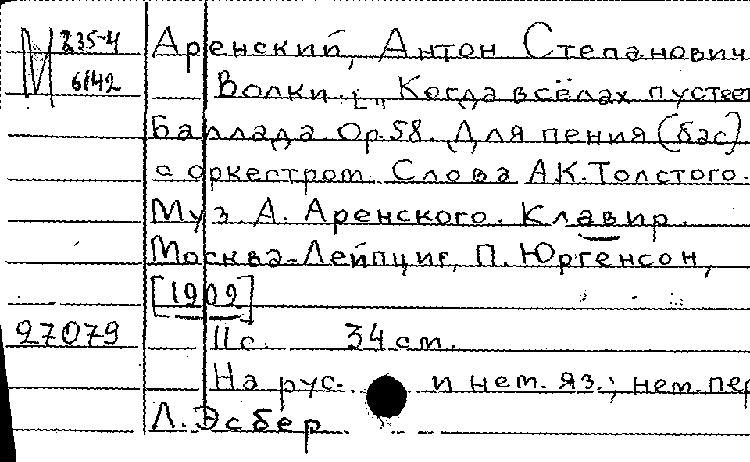 М 235-4
6142
Аренский, Антон Степанович
Волки. [„Когда в сёлах пустеет
Баллада Ор.58. Для пения (бас)
с оркестром. Слова А.К.Толстого.
Муз. А. Аренского. Клавир.
Москва-Лейпциг, П. Юргенсон,
[1909]
27079 11 с. 34 см.
На рус. и нем. яз.; нем. пер
Л. Эсбер